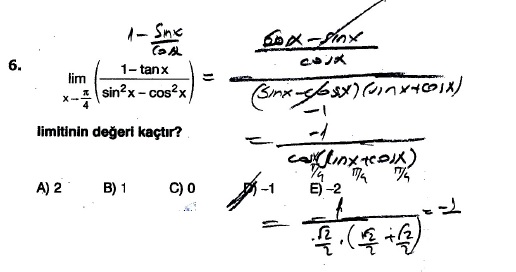 1 - sinx/cosx
6. lim x→π/4 ( (1 – tan x) / (sin²x – cos²x) ) = ( (cosx - sinx) / cosx ) / ( (sinx - cosx)(sinx + cosx) )
-1
limitinin değeri kaçtır?
= -1 / ( cosx (sinx + cosx) )
π/4 π/4 π/4
A) 2 B) 1 C) 0 D) –1 E) –2
= -1 / ( √2/2 · ( √2/2 + √2/2 ) ) = -1